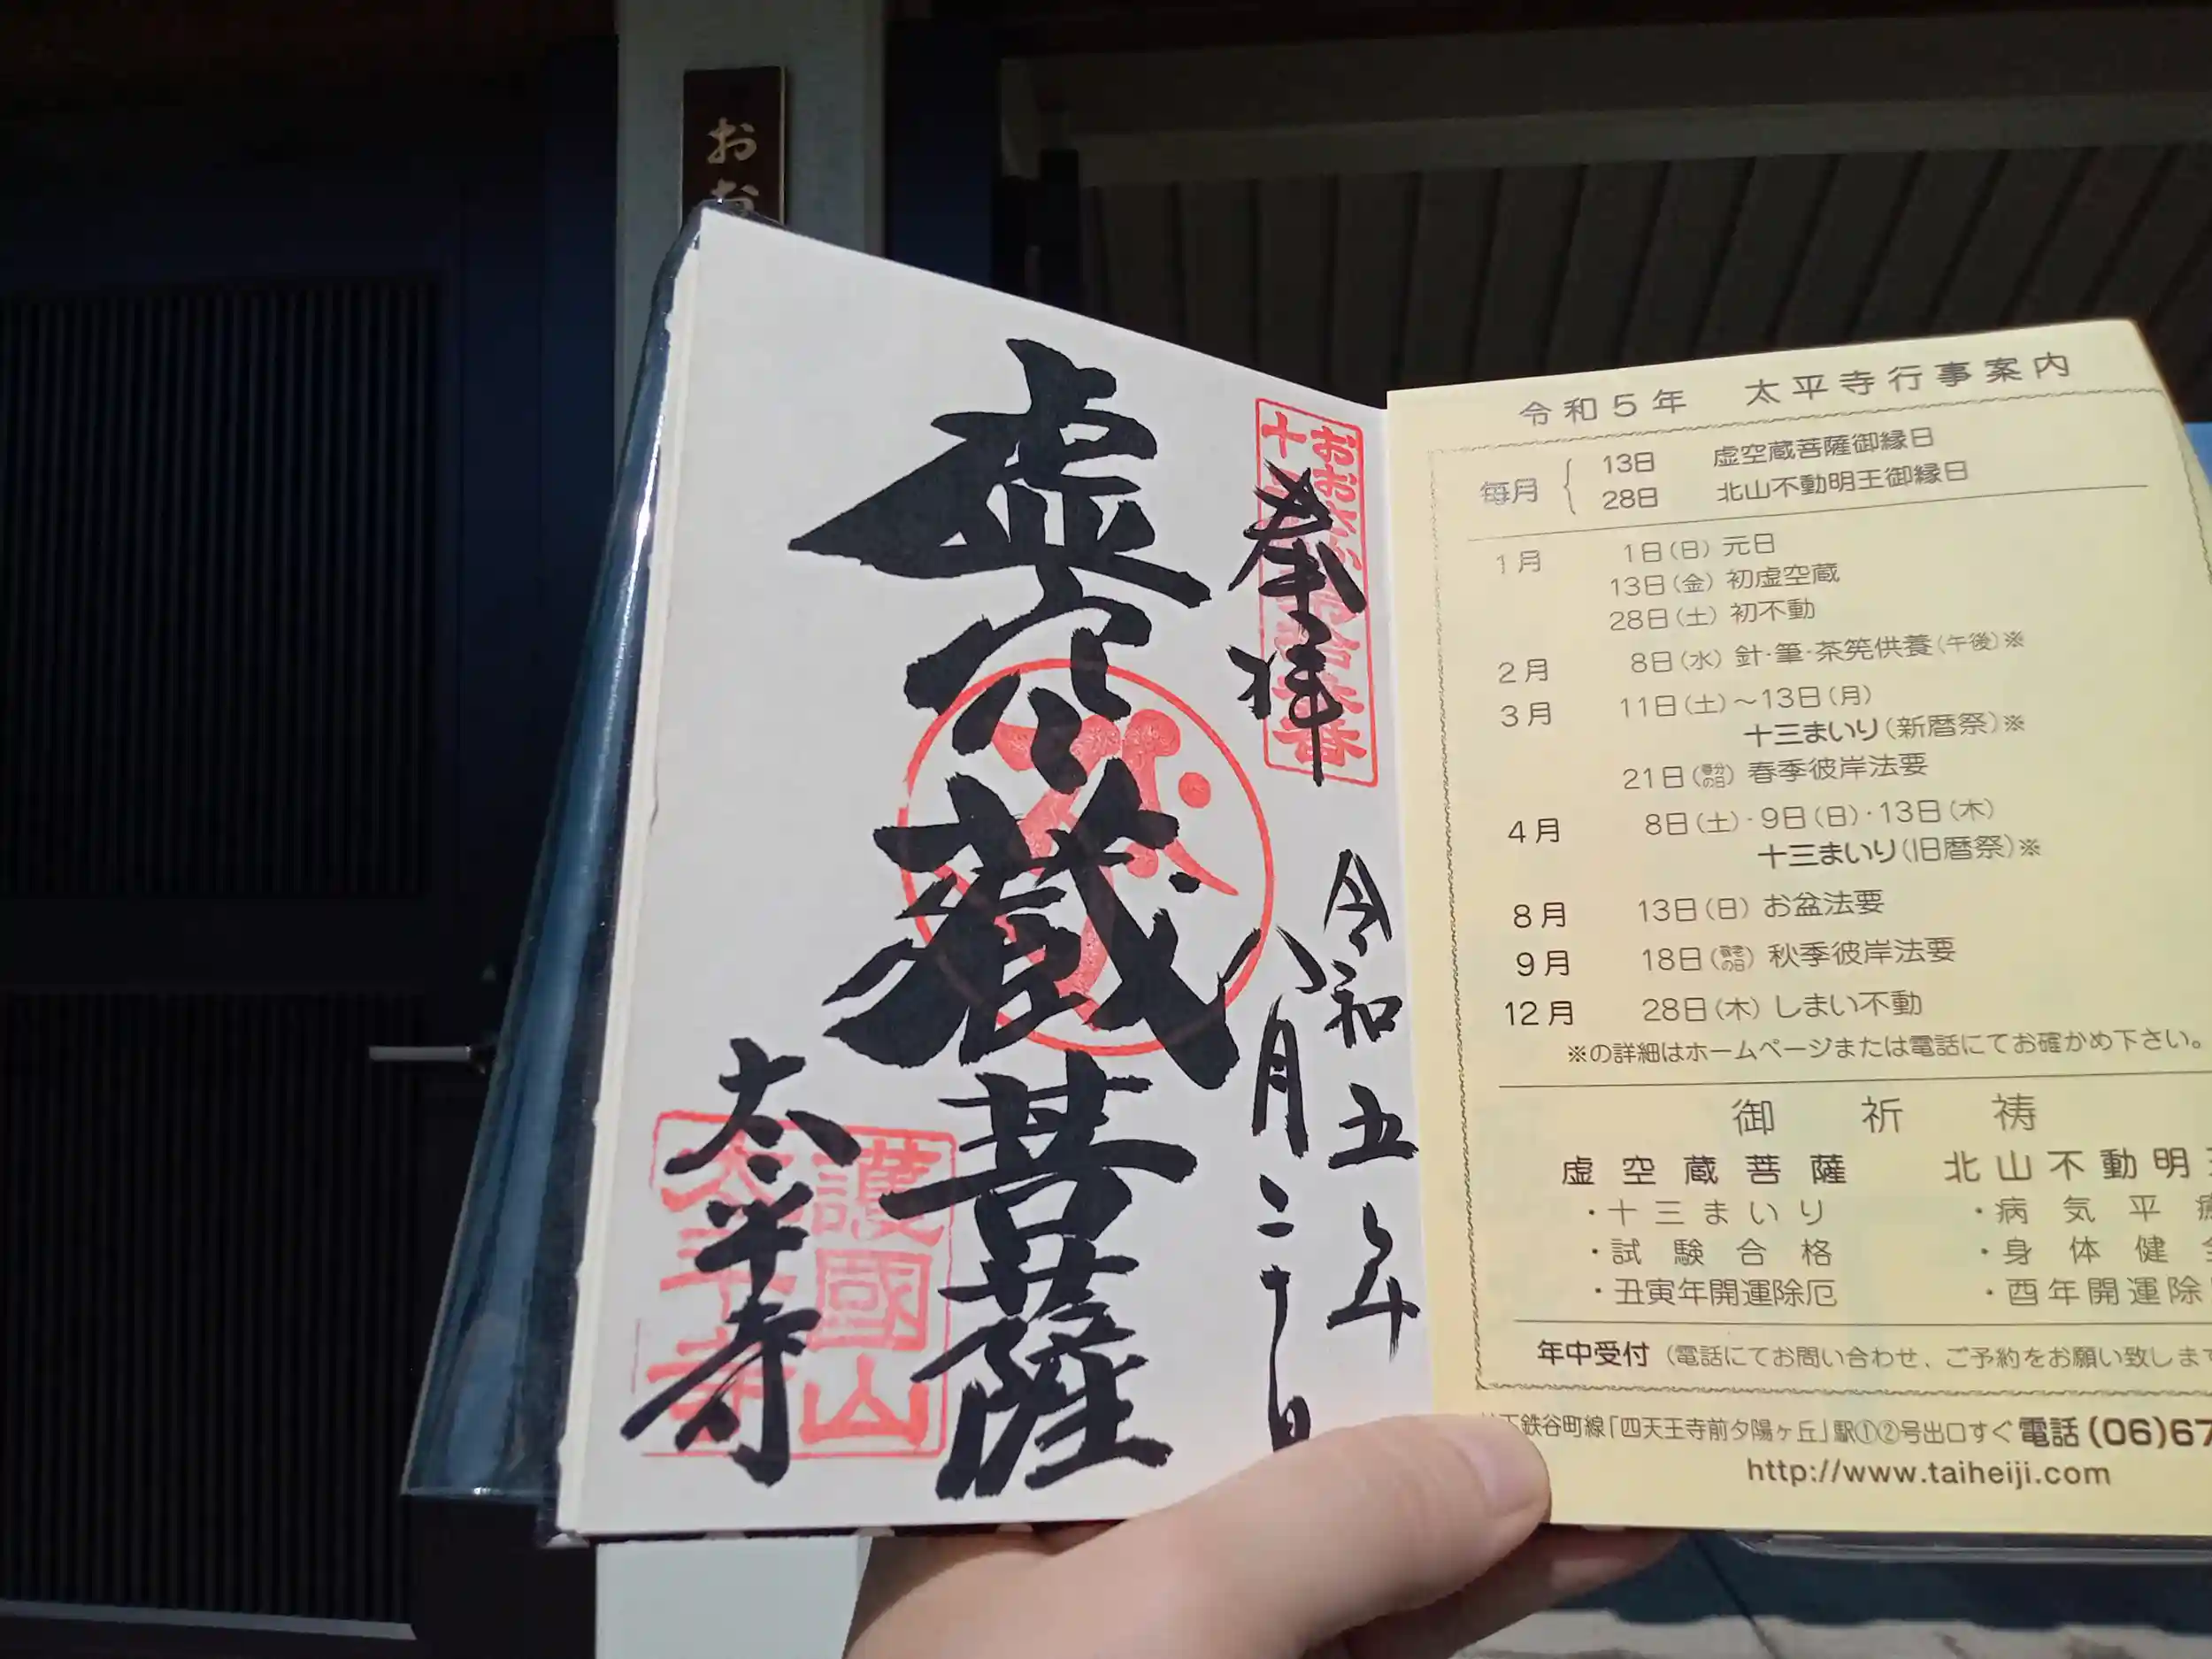 おお
奉拝
令和五年
八月二十日
虚空蔵菩薩
太平寺
護國山
太平寺
令和5年　太平寺行事案内
毎月 13日 虚空蔵菩薩御縁日
28日 北山不動明王御縁日
1月 1日(日) 元日
13日(金) 初虚空蔵
28日(土) 初不動
2月 8日(水) 針・筆・茶筅供養(午後)※
3月 11日(土)～13日(月)
十三まいり(新暦祭)※
21日(春分の日) 春季彼岸法要
4月 8日(土)・9日(日)・13日(木)
十三まいり(旧暦祭)※
8月 13日(日) お盆法要
9月 18日(敬老の日) 秋季彼岸法要
12月 28日(木) しまい不動
※の詳細はホームページまたは電話にてお確かめ下さい。
御祈祷
虚空蔵菩薩 北山不動明
・十三まいり ・病気平
・試験合格 ・身体健
・丑寅年開運除厄 ・酉年開運除
年中受付（電話にてお問い合わせ、ご予約をお願い致します
下鉄谷町線「四天王寺前夕陽ヶ丘」駅①②号出口すぐ 電話(06)67
http://www.taiheiji.com